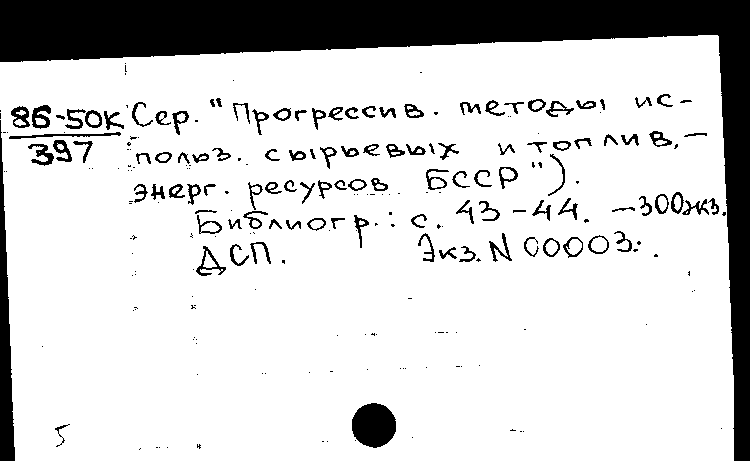 86-50К Сер. "Прогрессив. методы ис-
397 польз. сырьевых и топлив.-
энерг. ресурсов БССР").
Библиогр.: с. 43-44. —300экз.
ДСП. Экз. N 00003.
5